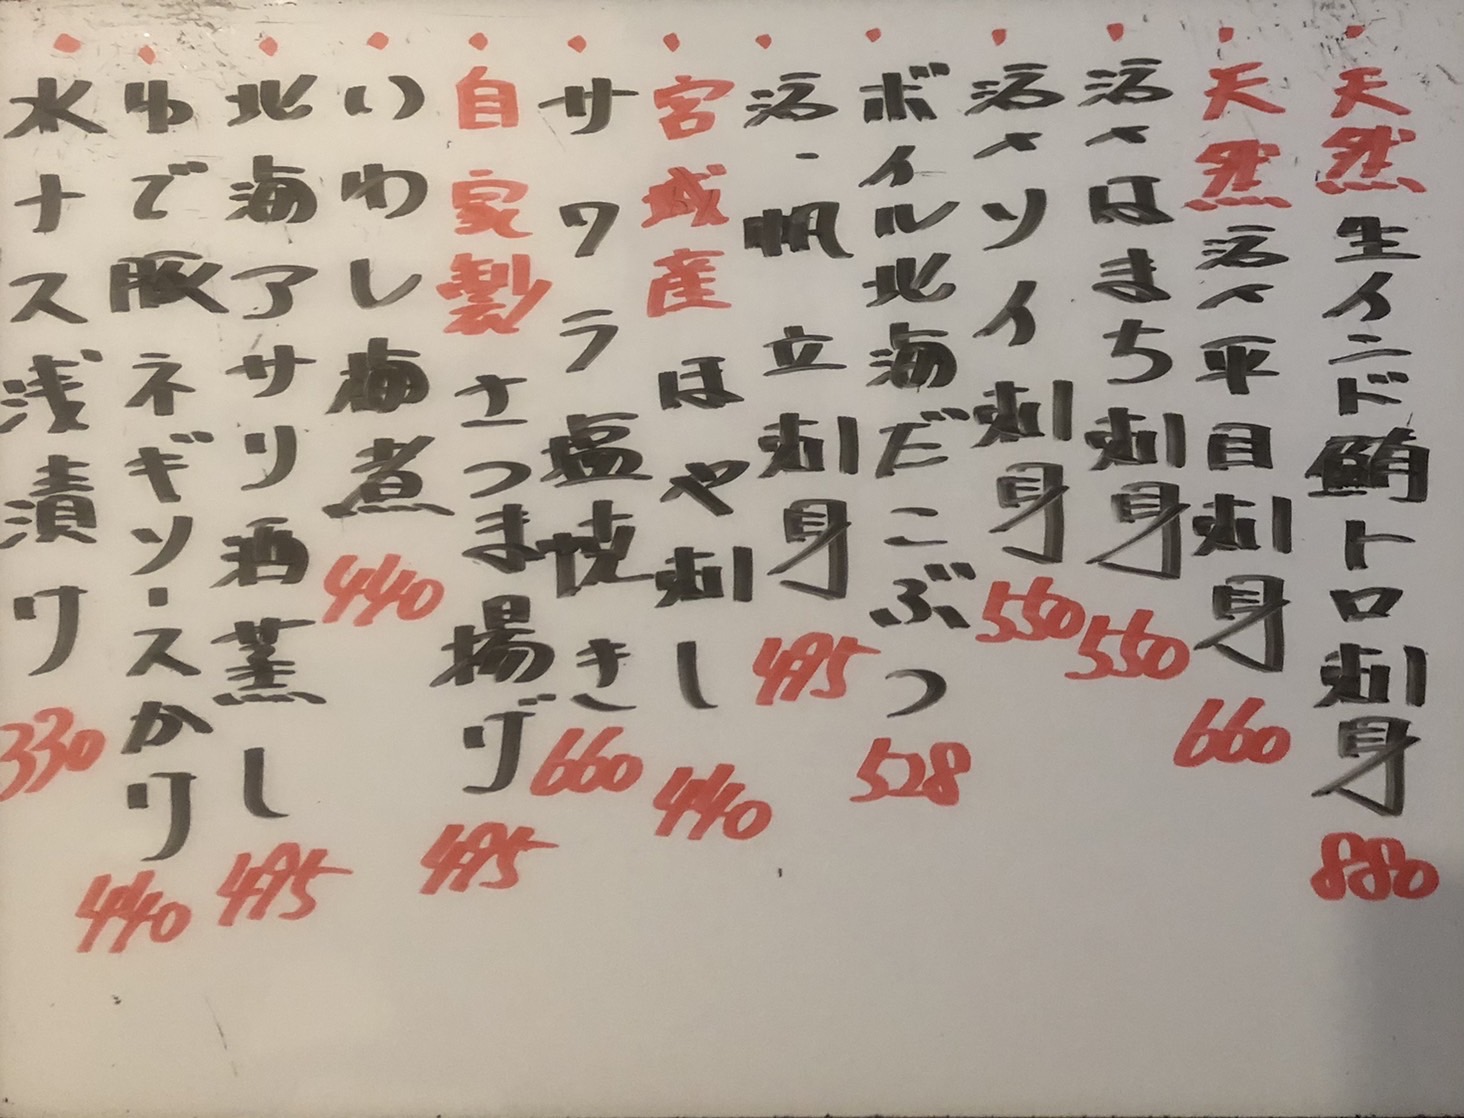 天然生インド鮪トロ刺身 880
天然活〆平目刺身 660
活〆はまち刺身 550
活〆ソイ刺身 550
ボイル北海だこぶつ 528
活・帆立刺身 495
宮城産ほや刺し 440
サワラ塩焼き 660
自家製さつま揚げ 495
いわし梅煮 440
北海アサリ酒蒸し 495
ゆで豚ネギソースかり 440
水ナス浅漬け 330